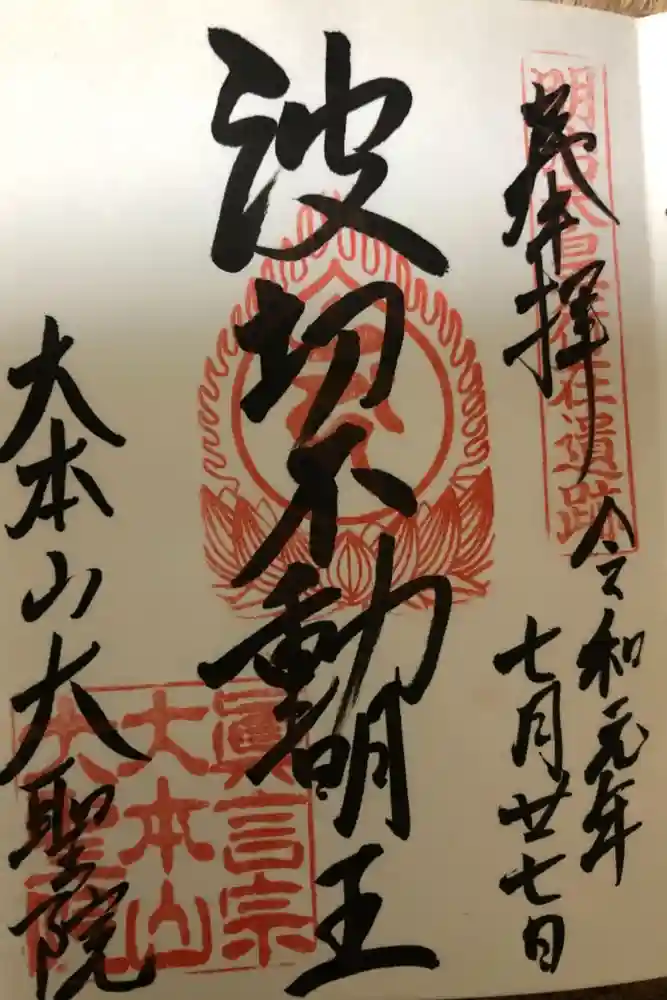 奉拝
明治天皇行在所遺跡
令和元年
七月廿七日
波切不動明王
大本山大聖院
眞言宗
大本山
大聖院